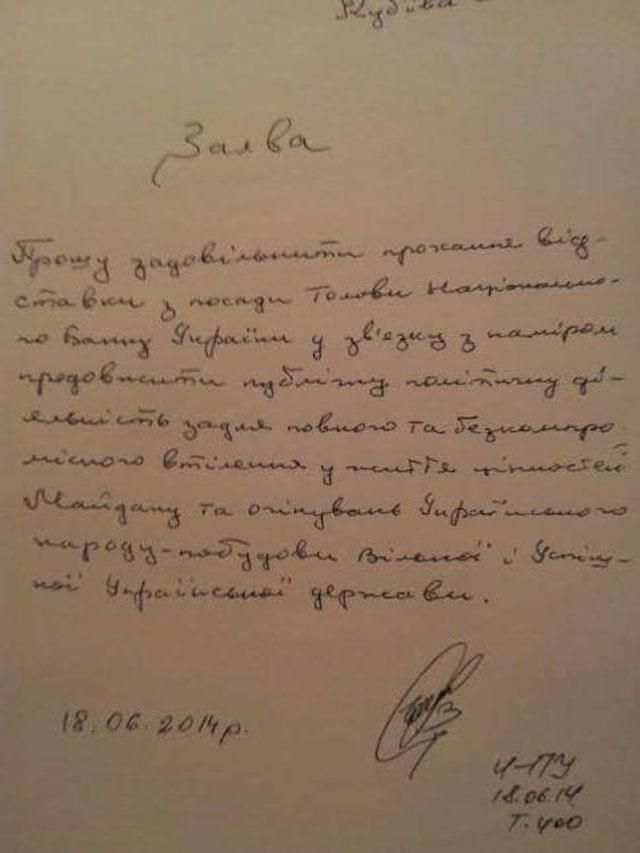 Кубіва
Заява
Прошу задовільнити прохання від-
ставки з посади Голови Національно-
го Банку України у зв'язку з наміром
продовжити публічну політичну ді-
яльність задля повного та безкомпро-
місного втілення у життя цінностей
Майдану та очікувань Українського
народу-побудови Вільної і Успіш-
ної Української держави.
18.06.2014р.
18.06.14
Т.400